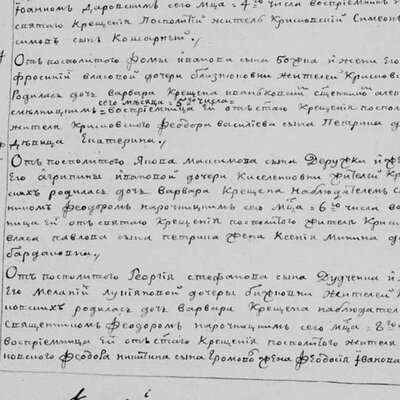 Іоанномъ Даровшимъ сего мца 4го числа воспріемникъ
святаго Крещенія Посполитій житель Крисовскій Симеонъ
симовъ сынъ Кошарный
Отъ посполитаго Фомы иванова сына Божка и жены его
фросиніи власовой дочери близнюковны жителей Крисовс
Родилась дочь варвара Крещена
сего месяца 5го числа
воспріемница Ей отъ стаго Крещенія поспол
жителя Крисовского Феодора василіева сына Петрича д
девица Екатерина
Отъ посполитаго Якова Максимова сына Деружки и ж
Его Агрипины ивановой дочери Киселевны жителей Кри
шихъ родилась дочь Варвара Крещена Наблюдателемъ с
никомъ Феодоромъ нарочицкимъ сего мца 6го числа во
ница ей отъ святаго Крещенія посполитаго жителя Крис
власа павлова сына петрича жена Ксенія Минина д
Отъ посполитаго Георгія стефанова сына Дудченка и
Его Меланіи лукіяновой дочеры жителей
новскихъ родилась дочь Варвара Крещена наблюдате
священникомъ Феодоромъ нарочицкимъ сего Мца 8го
воспріемница Ей отъ стаго Крещенія посполитаго жителя
новского Феодора никитина сына Громово жена Феодосія іванова